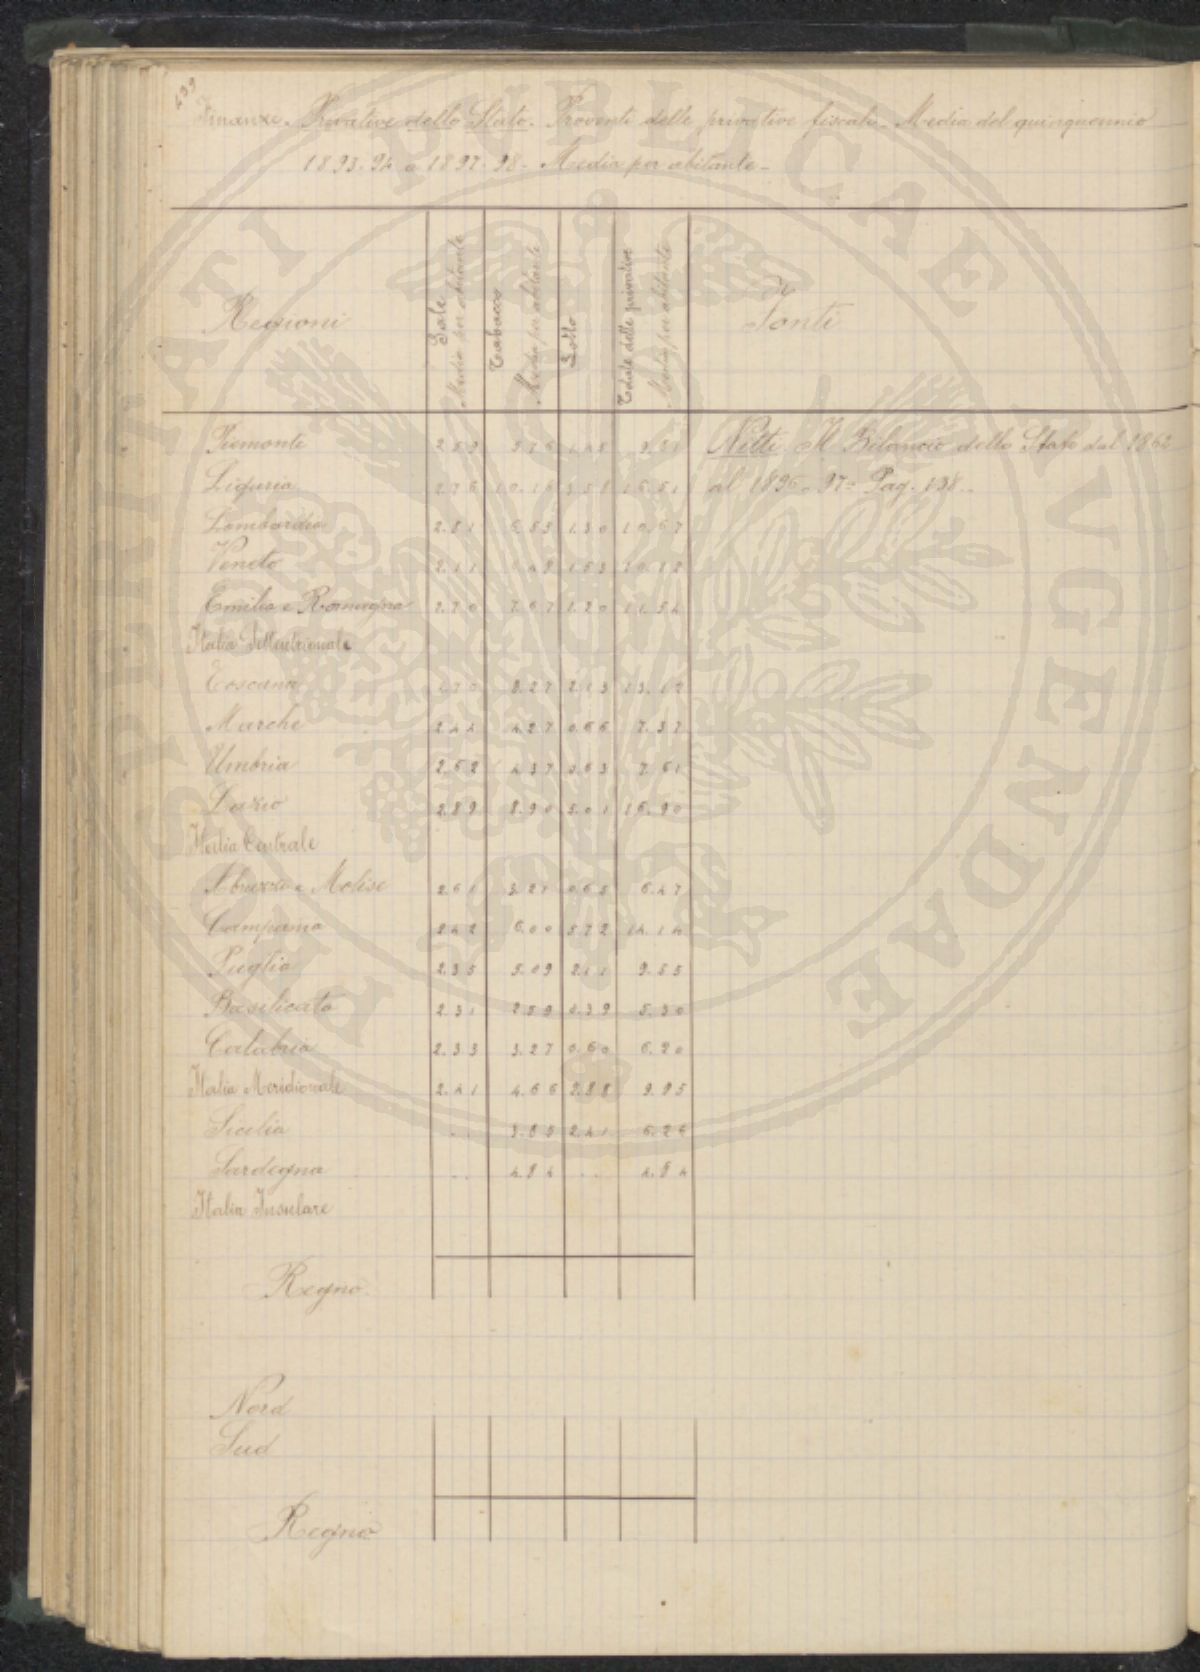 499
Finanze. Privative dello Stato. Proventi delle privative fiscali. Media del quinquennio
1893-94 a 1897-98. Media per abitante.
Regioni
Sale
Media per abitante
Tabacco
Media per abitante
Lotto
Totale delle privative
Media per abitante
Fonti
Piemonte 2.59 5.76 9.81
Nitti. Il Bilancio dello Stato dal 1862
Liguria 2.76 10.16 3.58 16.51
al 1896-97. Pag. 138.
Lombardia 2.81 6.53 1.30 10.67
Veneto 2.11 6.48 1.53 10.12
Emilia e Romagna 2.70 7.67 1.20 11.54
Italia Settentrionale
Toscana 2.70 8.27 2.13 13.12
Marche 2.44 4.27 0.66 7.37
Umbria 2.62 4.37 0.63 7.61
Lazio 2.89 8.90 5.01 16.90
Italia Centrale
Abruzzi e Molise 2.61 3.21 0.65 6.47
Campania 2.42 6.00 5.72 14.14
Puglia 2.35 5.09 2.11 9.55
Basilicata 2.31 2.59 0.39 5.30
Calabria 2.33 3.27 0.60 6.20
Italia Meridionale 2.41 4.66 2.88 9.95
Sicilia .. 3.85 2.41 6.26
Sardegna .. 4.84 .. 4.84
Italia Insulare
Regno
Nord
Sud
Regno
PROSPERITATI PUBLICAE AUGENDAE